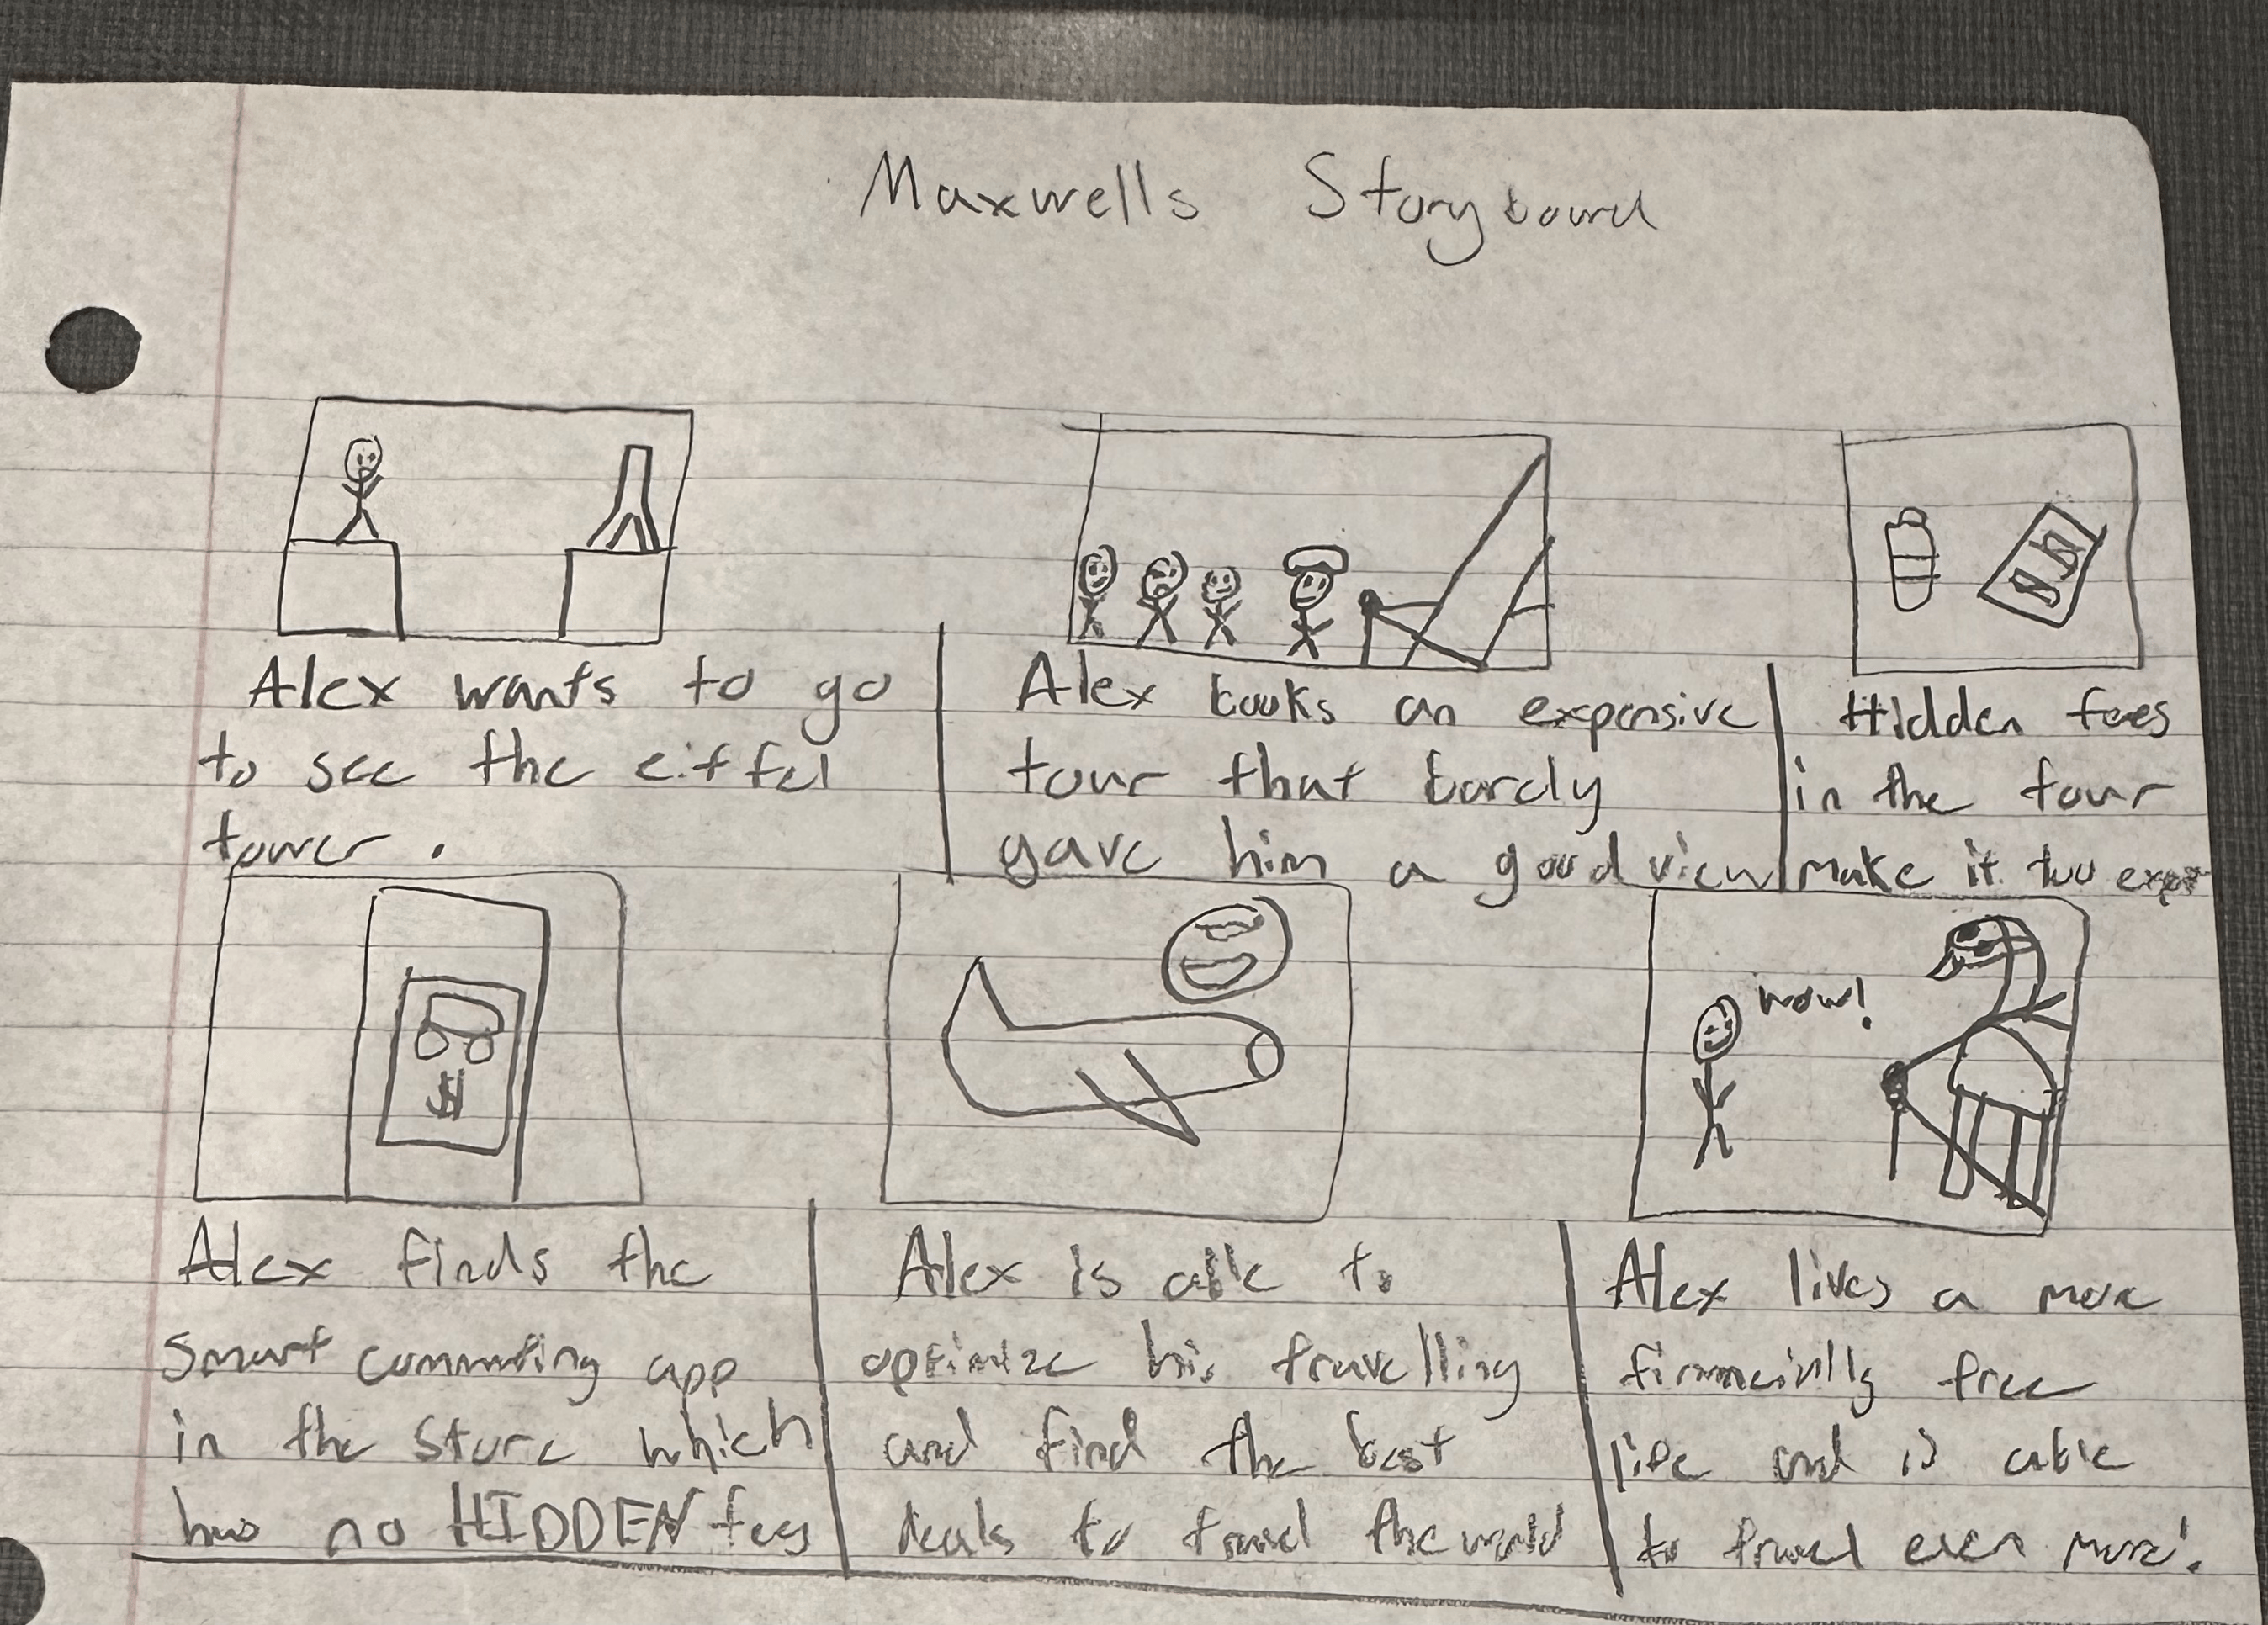 Maxwells Storyboard
Alex wants to go
to see the eiffel
tower.
Alex books an expensive
tour that barely
gave him a good view
Hidden fees
in the tour
make it too
$
wow!
Alex finds the
smart commuting app
in the store which
has no HIDDEN fees
Alex is able to
optimize his travelling
and find the best
deals to travel the world
Alex lives a more
free
life and is able
to travel even more!